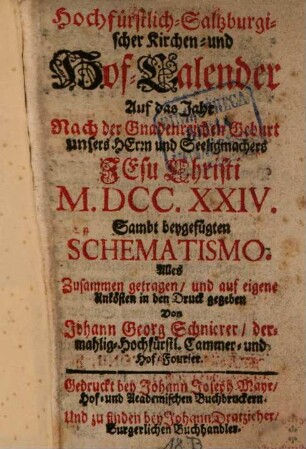 Hochfürstlich-Saltzburgi-
scher Kirchen- und
Hof-Calender
Auf das Jahr
Nach der Gnadenreichen Geburt
unsers HErrn und Seeligmachers
JEsu Christi
M. DCC. XXIV.
Sambt beygefügten
SCHEMATISMO.
Alles
Zusammen getragen / und auf eigene
Unkösten in den Druck gegeben
Von
Johann Georg Schnierer / der-
mahlig-Hochfürstl. Cammer- und
Hof-Fourier.
Gedruckt bey Johann Joseph Mayr /
Hof- und Academischen Buchdruckern.
Und zu finden bey Johann Dratzieher /
Burgerlichen Buchhandler.